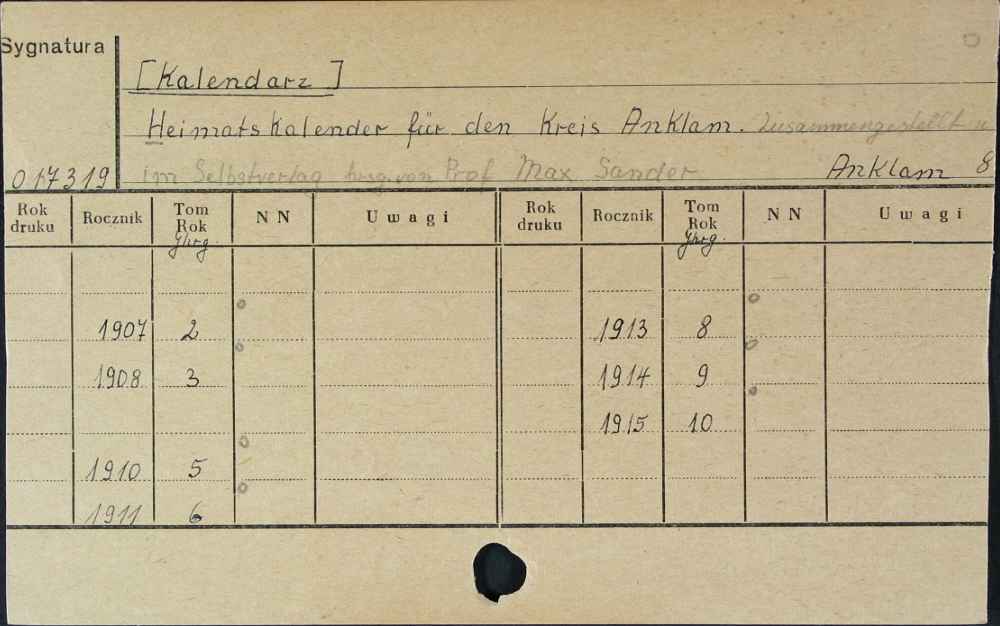 Sygnatura
[Kalendarz]
Heimatskalender für den Kreis Anklam. Zusammengestellt u
im Selbstverlag hrsg. von Prof Max Sander
Anklam 8
017319
Rok druku Rocznik Tom Rok Jhrg. NN Uwagi Rok druku Rocznik Tom Rok Jhrg. NN Uwagi
1907 2 1913 8
1908 3 1914 9
1915 10
1910 5
1911 6